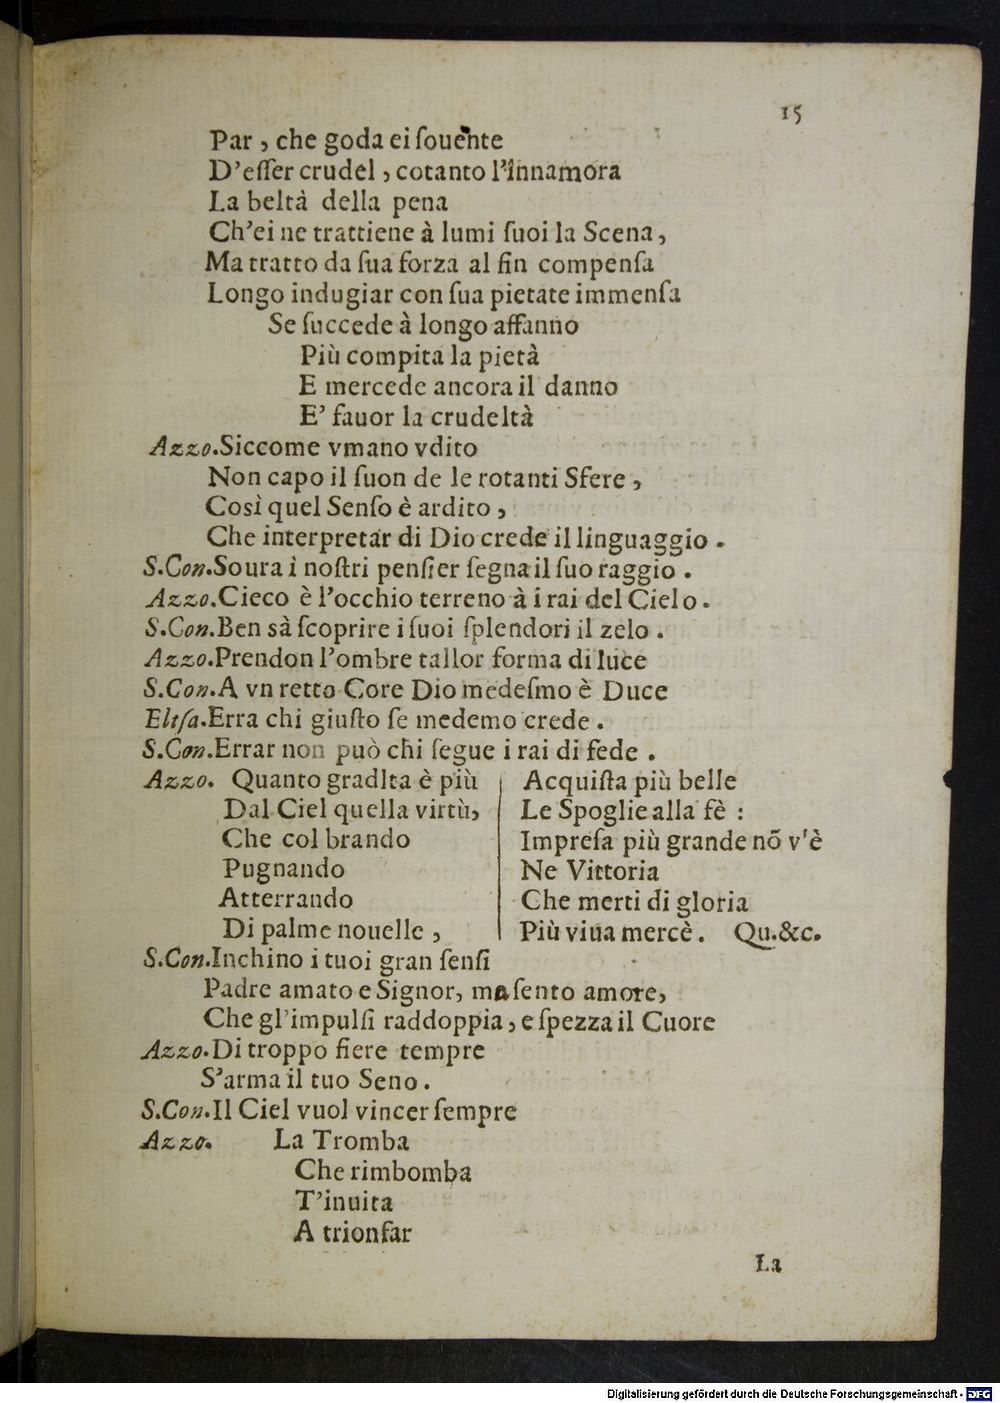 15
Par , che goda ei ſouente
D'eſſer crudel , cotanto l'innamora
La beltà della pena
Ch'ei ne trattiene à lumi ſuoi la Scena,
Ma tratto da ſua forza al fin compenſa
Longo indugiar con ſua pietate immenſa
Se ſuccede à longo affanno
Più compita la pietà
E mercede ancora il danno
E' fauor la crudeltà
Azzo.Siccome vmano vdito
Non capo il ſuon de le rotanti Sfere ,
Così quel Senſo è ardito ,
Che interpretar di Dio crede il linguaggio .
S.Con.Soura i noſtri penſier ſegna il ſuo raggio .
Azzo.Cieco è l'occhio terreno à i rai del Cielo .
S.Con.Ben sà ſcoprire i ſuoi ſplendori il zelo .
Azzo.Prendon l'ombre tallor forma di luce
S.Con.A vn retto Core Dio medeſmo è Duce
Eliſa.Erra chi giuſto ſe medemo crede .
S.Con.Errar non può chi ſegue i rai di fede .
Azzo. Quanto gradIta è più
Dal Ciel quella virtù,
Che col brando
Pugnando
Atterrando
Di palme nouelle ,
Acquiſta più belle
Le Spoglie alla fè :
Impreſa più grande nõ v'è
Ne Vittoria
Che merti di gloria
Più viua mercè . Qu.&c.
S.Con.Inchino i tuoi gran ſenſi
Padre amato e Signor, ma ſento amore,
Che gl'impulſi raddoppia , e ſpezza il Cuore
Azzo.Di troppo fiere tempre
S'arma il tuo Seno .
S.Con.Il Ciel vuol vincer ſempre
Azzo. La Tromba
Che rimbomba
T'inuita
A trionfar
La
Digitalisierung gefördert durch die Deutsche Forschungsgemeinschaft - DFG